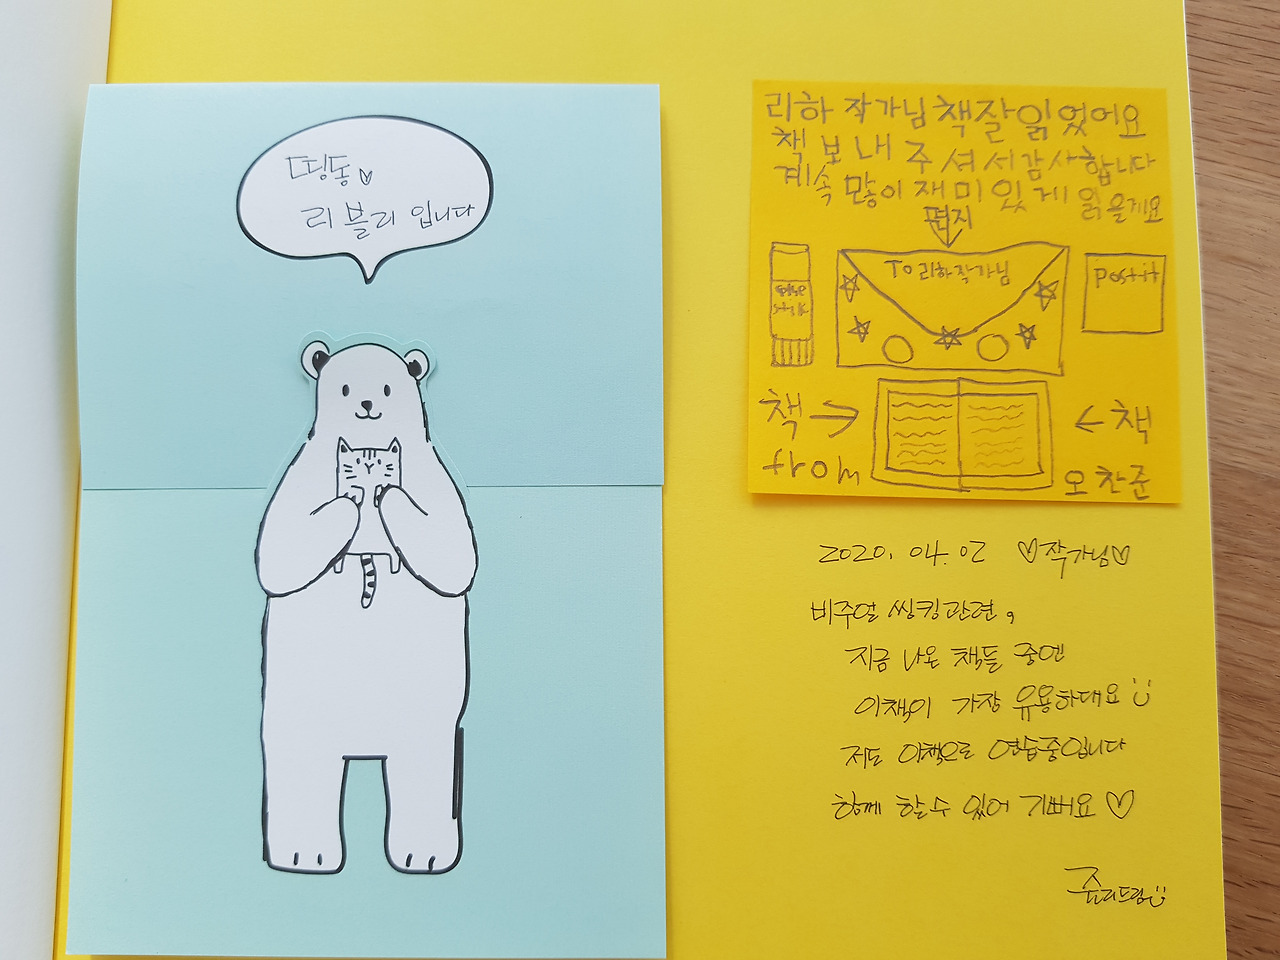 띵동♡
리블리 입니다
리하 작가님 책잘읽었어요
책 보내주셔서감사합니다
계속 많이 재미있게 읽을게요
편지
To 리하작가님
stick
postit
책 → ← 책
from 오찬준
2020. 04. 02 ♡작가님♡
비주얼 씽킹관련,
지금 나온 책들 중엔
이책이 가장 유용하대요
저도 이책으로 연습중입니다
함께 할수 있어 기뻐요♡
쥬리드림